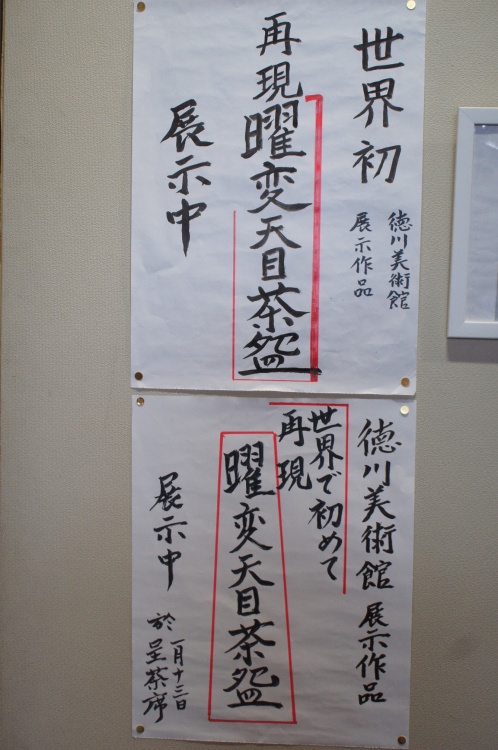 世界初
徳川美術館
展示作品
再現曜変天目茶盌
展示中
徳川美術館 展示作品
世界で初めて
再現
曜変天目茶盌
展示中
一月十三日
於呈茶席